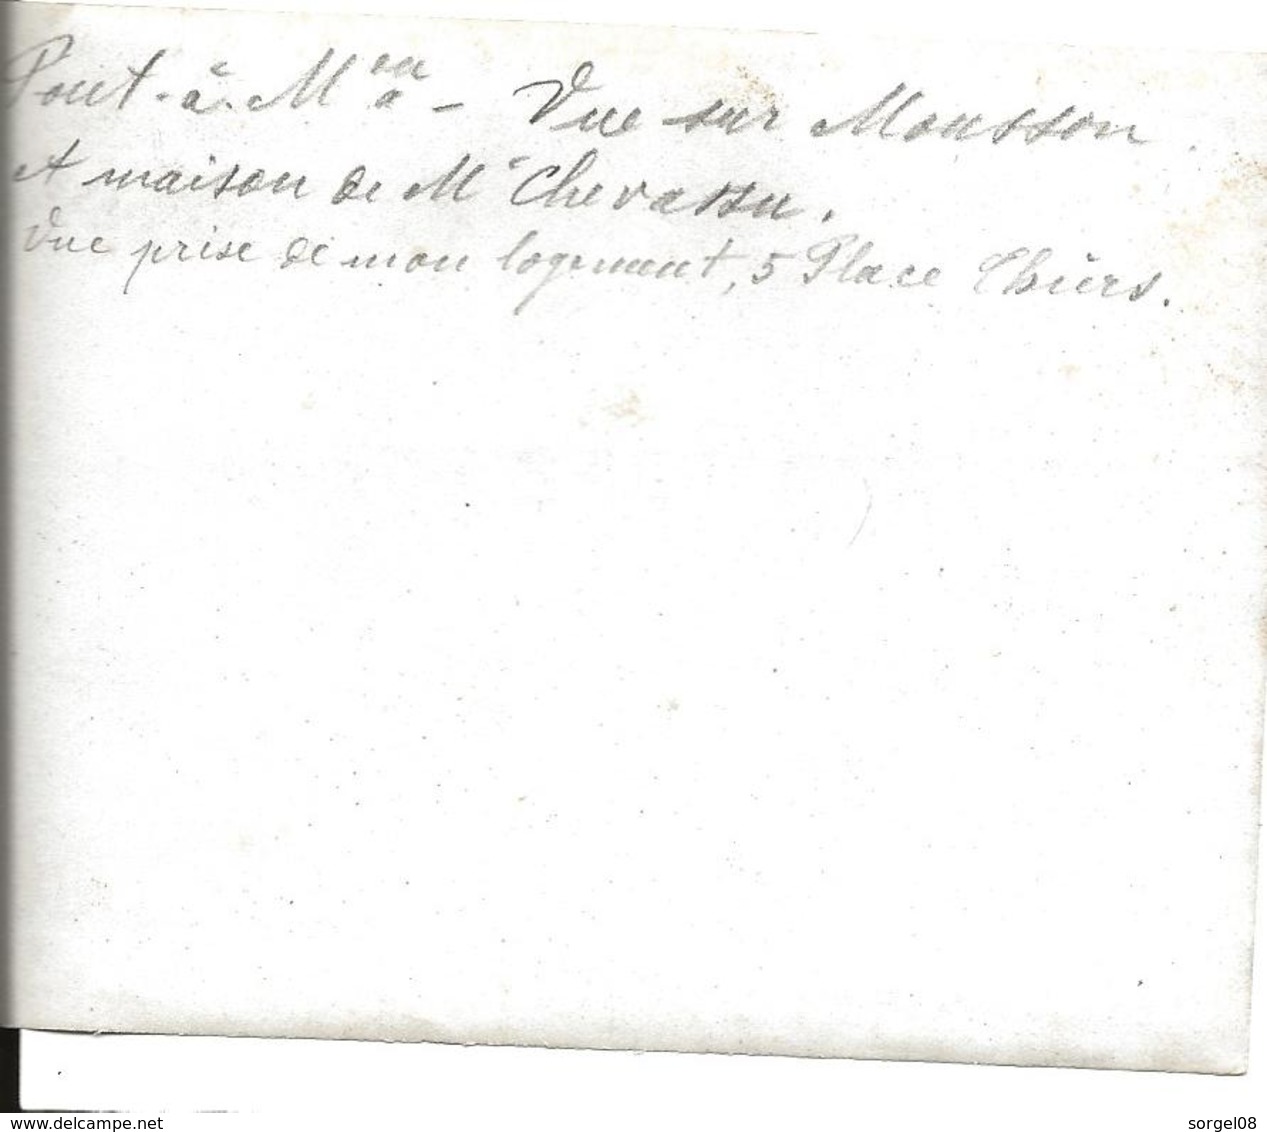 Pont-à-Mon - Vue sur Mousson.
et maison de Mr Chevassu.
Vue prise de mon logement, 5 Place Thiers.
www.delcampe.net
sorgel08